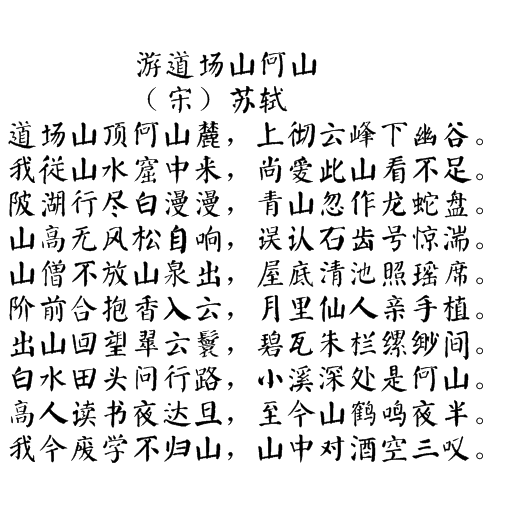 游道场山何山
（宋）苏轼
道场山顶何山麓，上彻云峰下幽谷。
我从山水窟中来，尚爱此山看不足。
陂湖行尽白漫漫，青山忽作龙蛇盘。
山高无风松自响，误认石齿号惊湍。
山僧不放山泉出，屋底清池照瑶席。
阶前合抱香入云，月里仙人亲手植。
出山回望翠云鬟，碧瓦朱栏缥缈间。
白水田头问行路，小溪深处是何山。
高人读书夜达旦，至今山鹤鸣夜半。
我今废学不归山，山中对酒空三叹。